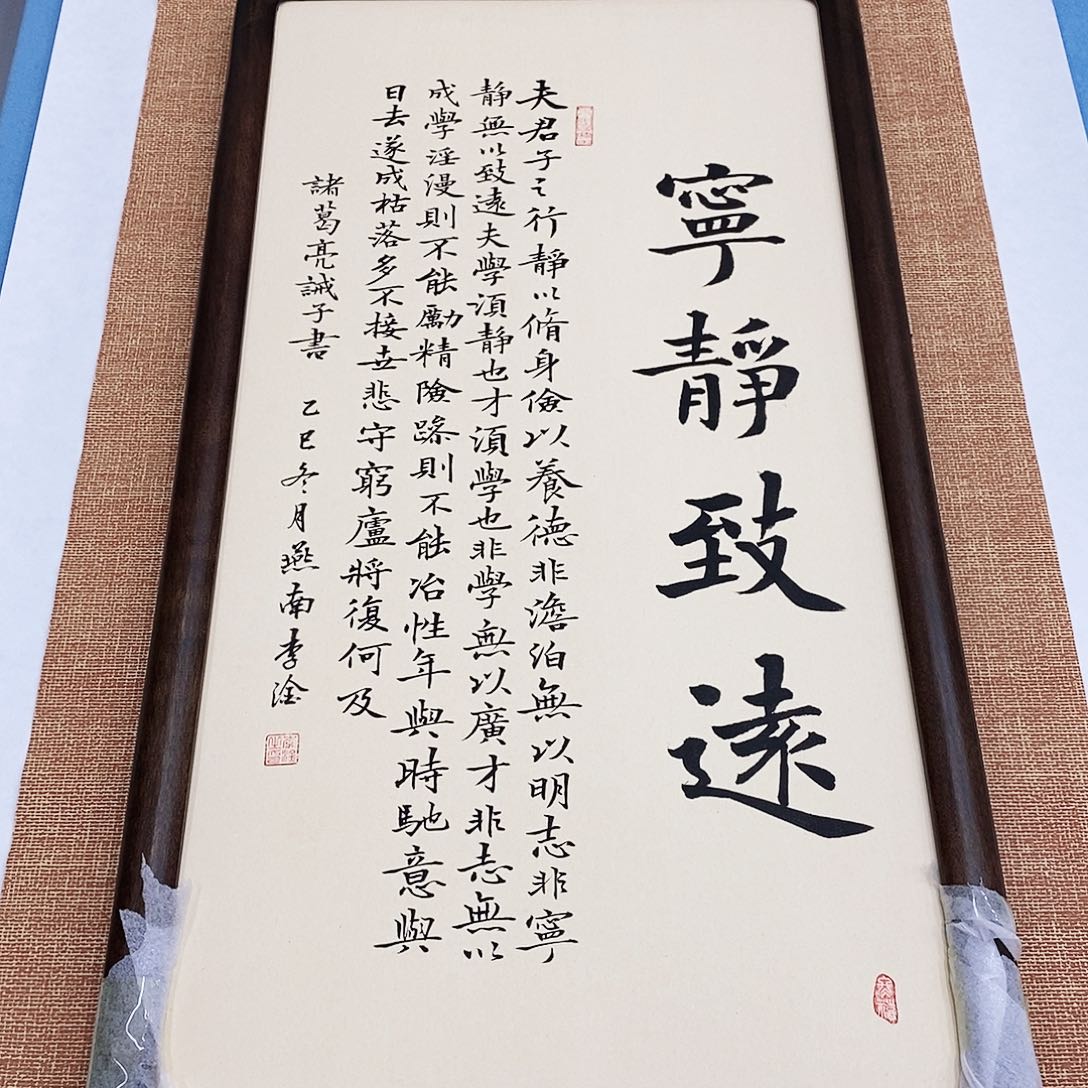 寧靜致遠
夫君子之行靜以脩身儉以養德非澹泊無以明志非寧
靜無以致遠夫學須靜也才須學也非學無以廣才非志無以
成學淫漫則不能勵精險躁則不能冶性年與時馳意與
日去遂成枯落多不接世悲守窮廬將復何及
諸葛亮誡子書 乙巳冬月燕南李淦